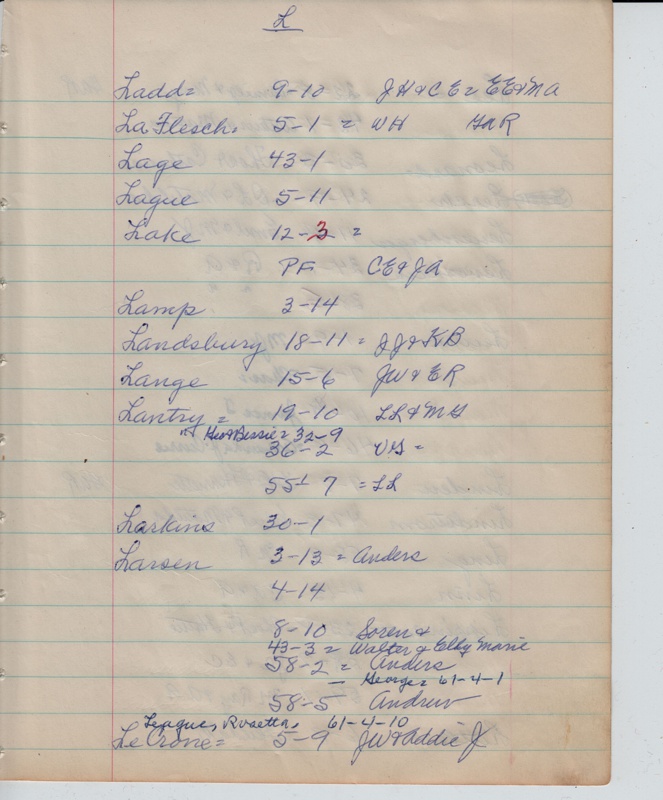 L
Ladd = 9-10 JH & CE = EE & MA
La Flesch. 5-1 = WH
Lage 43-1
Lague 5-11
Lake 12-3 =
PF CE & JA
Lamp. 3-14
Landsbury 18-11 = JJ & KB
Lange 15-6 JW & ER
Lantry = 19-10 LL & MG
" Geo & Bessie = 32-9
36-2 VG =
55-7 = LL
Larkins 30-1
Larsen 3-13 = Anders
4-14
8-10 Soren &
43-3 = Walter & Marie
58-2 = Anders
— George = 61-4-1
58-5 Andrew
League, Rosetta, 61-4-10
Le Crone = 5-9 JW & Addie J